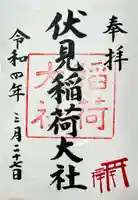 奉拝
伏見稲荷大社
稲荷
大社
令和四年三月二十二日